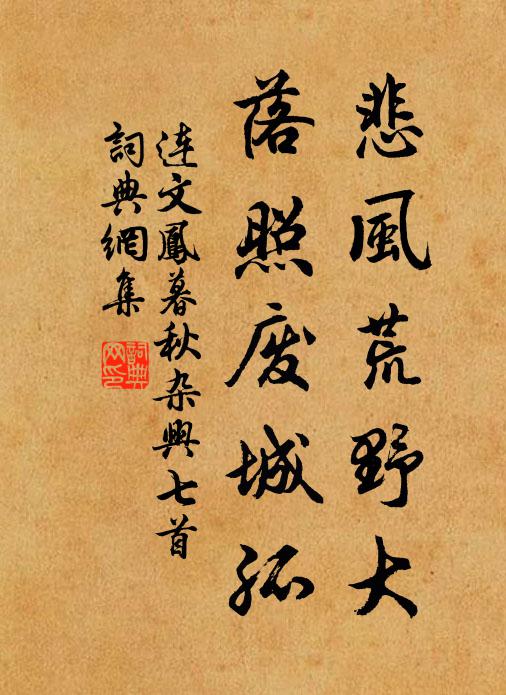 悲風荒野大
落照废城孤
連文鳳暮秋杂興七首
詞典網集
詞典网印